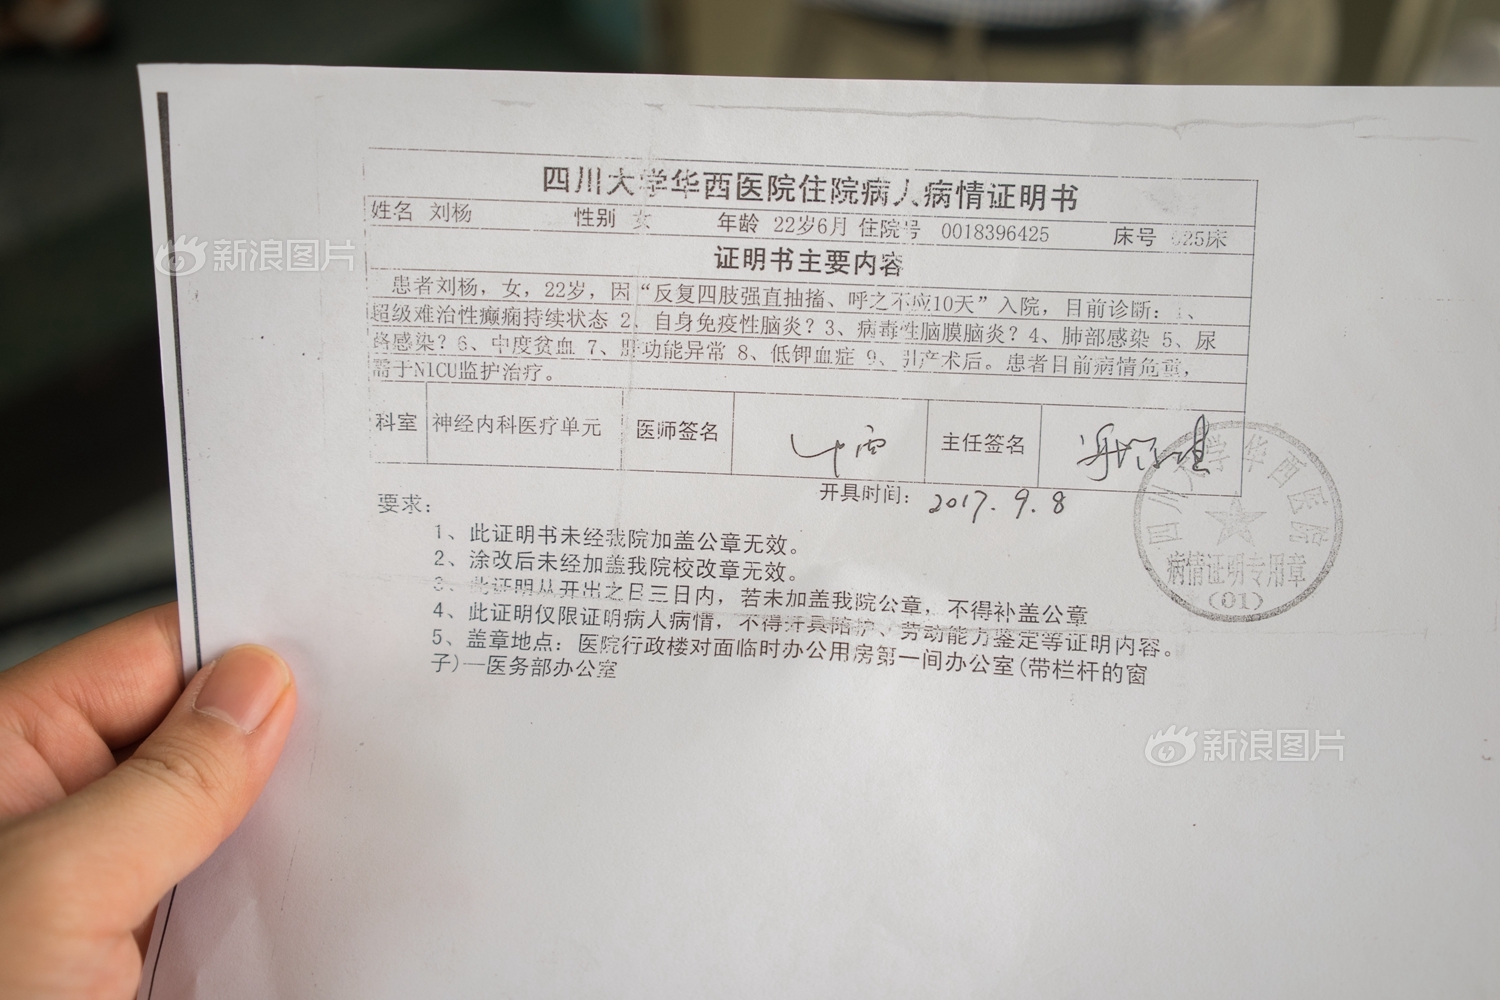 四川大学华西医院住院病人病情证明书
姓名 刘杨 性别 女 年龄 22岁6月 住院号 0018396425 床号 025床
证明书主要内容
患者刘杨，女，22岁，因“反复四肢强直抽搐、呼之不应10天”入院，目前诊断：1、
超级难治性癫痫持续状态 2、自身免疫性脑炎？3、病毒性脑膜脑炎？4、肺部感染 5、尿
路感染？6、中度贫血 7、肝功能异常 8、低钾血症 9、引产术后。患者目前病情危重，
需于NICU监护治疗。
科室 神经内科医疗单元 医师签名 主任签名
开具时间：2017.9.8
要求：
1、此证明书未经我院加盖公章无效。
2、涂改后未经加盖我院校改章无效。
3、此证明从开出之日三日内，若未加盖我院公章，不得补盖公章
4、此证明仅限证明病人病情，不得开具陪护、劳动能力鉴定等证明内容。
5、盖章地点：医院行政楼对面临时办公用房第一间办公室(带栏杆的窗
子)—医务部办公室
四川大学华西医院
病情证明专用章
(01)
新浪图片
新浪图片